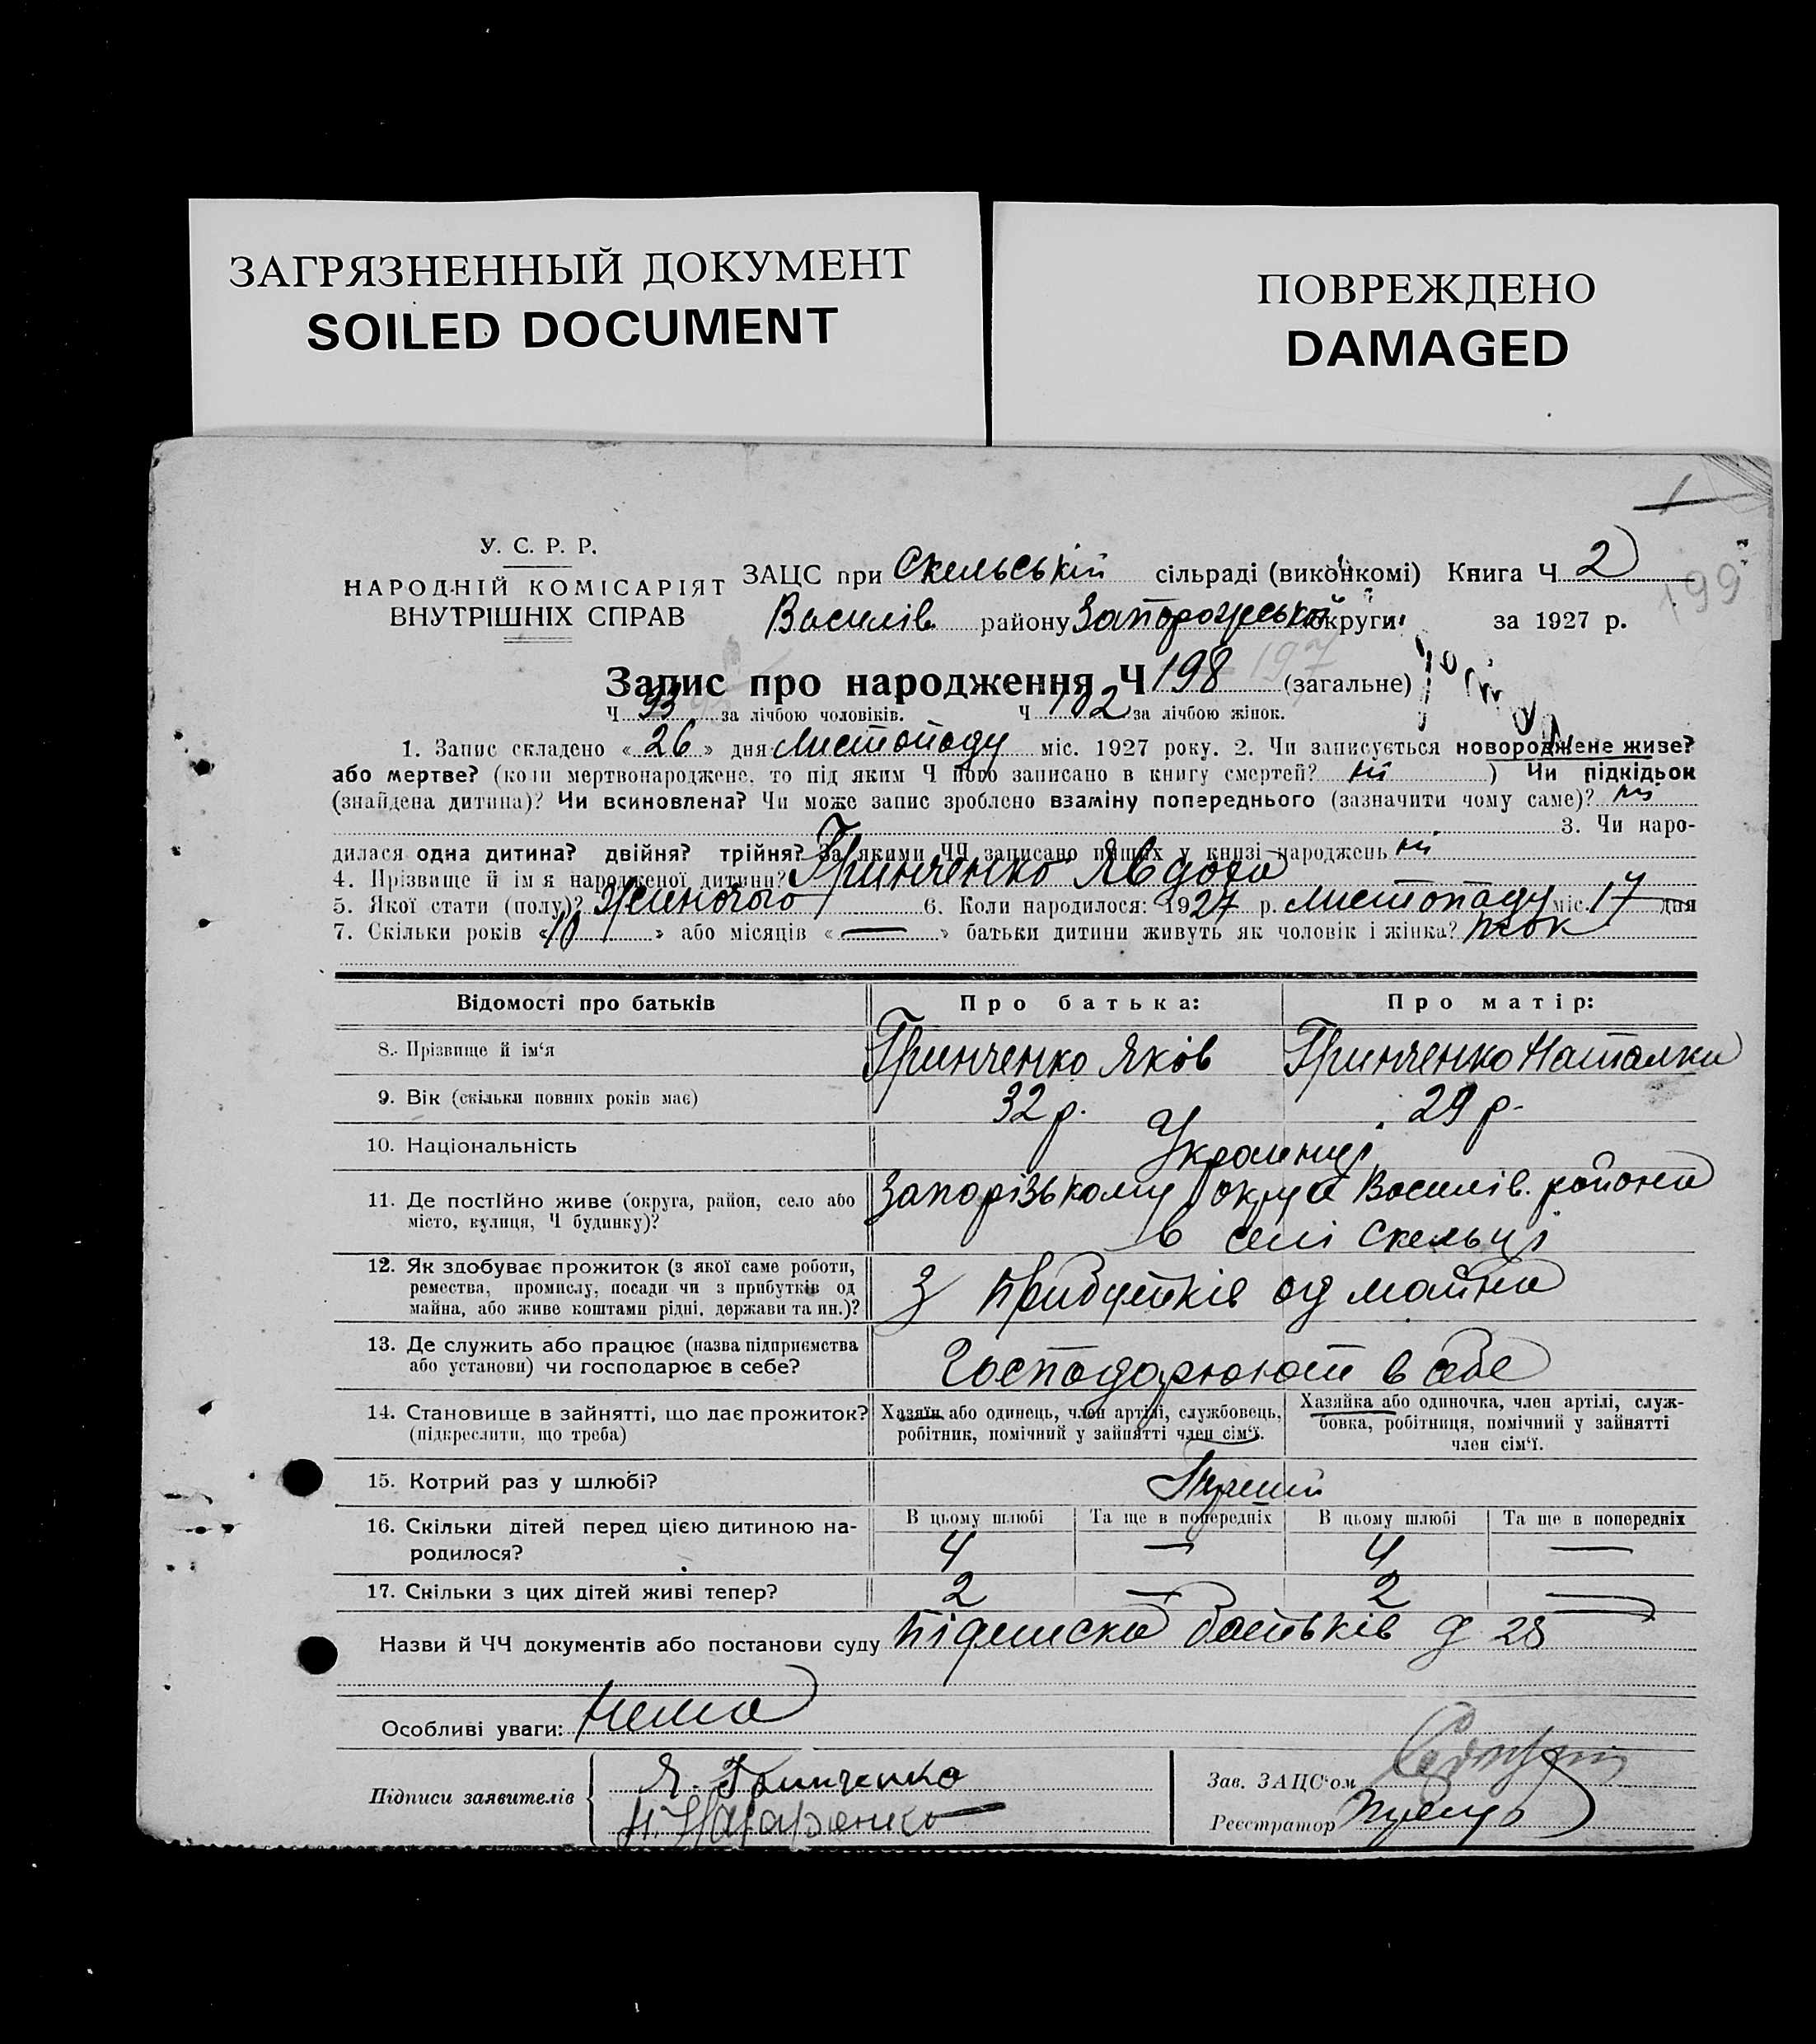 ЗАГРЯЗНЕННЫЙ ДОКУМЕНТ
SOILED DOCUMENT
ПОВРЕЖДЕНО
DAMAGED
У. С. Р. Р.
НАРОДНІЙ КОМІСАРІЯТ
ВНУТРІШНІХ СПРАВ
ЗАЦС при Скельській сільраді (виконкомі) Книга Ч 2
199
Василів. району Запорожської округи за 1927 р.
Запис про народження Ч 198 197 (загальне)
Ч 93 за лічбою чоловіків. Ч 102 за лічбою жінок.
1. Запис складено « 26 » дня Листопаду міс. 1927 року. 2. Чи записується новороджене живе?
або мертве? (коли мертвонароджене, то під яким Ч його записано в книгу смертей? ні ) Чи підкідьок
(знайдена дитина)? Чи всиновлена? Чи може запис зроблено взаміну попереднього (зазначити чому саме)? ні
3. Чи наро-
дилася одна дитина? двійня? трійня? За якими ЧЧ записано инших у книзі народжень ні
4. Прізвище й ім'я народженої дитини? Гринченко Явдоха
5. Якої стати (полу)? Жиночого 6. Коли народилося: 1927 р. листопаду міс. 17 дня
7. Скільки років « 10 » або місяців « — » батьки дитини живуть як чоловік і жінка? так
Відомості про батьків Про батька: Про матір:
8. Прізвище й ім'я Гринченко Яків Гринченко Наталка
9. Вік (скільки повних років має) 32 р. 29 р.
10. Національність Украинці
11. Де постійно живе (округа, район, село або Запорізькому округа Василів. района
місто, вулиця, Ч будинку)? в селі Скельці
12. Як здобуває прожиток (з якої саме роботи,
ремества, промислу, посади чи з прибутків од
майна, або живе коштами рідні, держави та ин.)? З прибутків од майна
13. Де служить або працює (назва підприємства
або установи) чи господарює в себе? Господарюють в себе
14. Становище в зайнятті, що дає прожиток?
(підкреслити, що треба)
Хазяїн або одинець, член артілі, службовець,
робітник, помічний у зайнятті член сім'ї.
Хазяйка або одиночка, член артілі, служ-
бовка, робітниця, помічний у зайнятті
член сім'ї.
15. Котрий раз у шлюбі?
16. Скільки дітей перед цією дитиною на-
родилося?
В цьому шлюбі Та ще в попередніх В цьому шлюбі Та ще в попередніх
4 — 4 —
17. Скільки з цих дітей живі тепер? 2 — 2 —
Назви й ЧЧ документів або постанови суду підписка батьків
Особливі уваги: Нема
Підписи заявителів Я. Гринченко
Зав. ЗАЦС'ом
Реєстратор